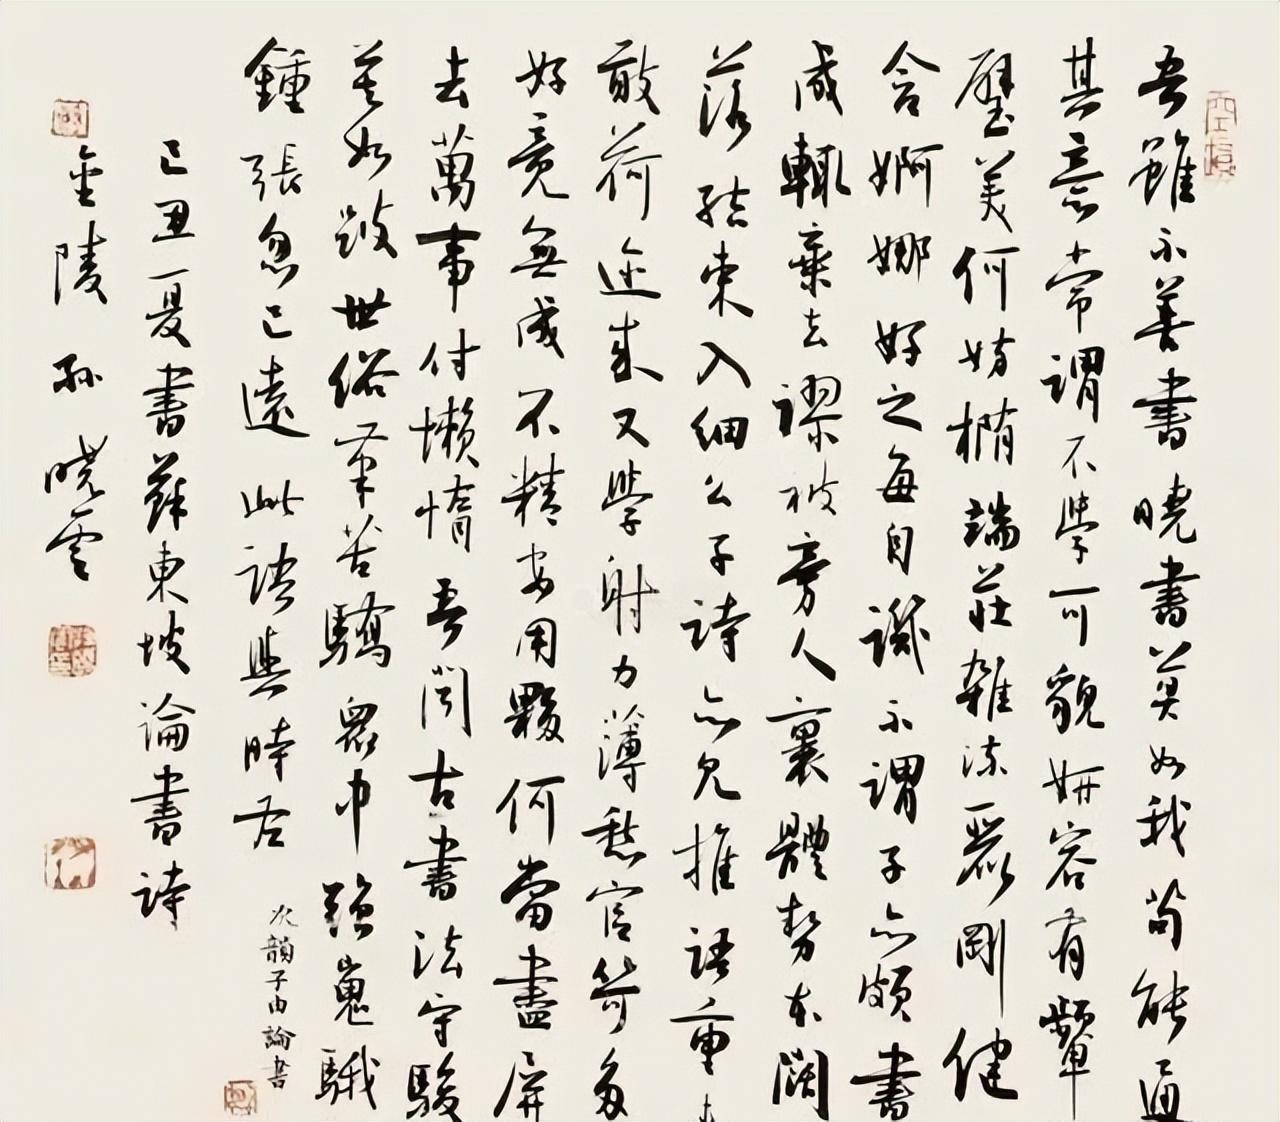 吾雖不善書曉書莫如我苟能通
其意常謂不學可貌妍容有顰
璧美何妨橢端莊雜流麗剛健
含婀娜好之每自譏不謂子亦頗書
成輒棄去謬被旁人裹體勢本闊
落結束入細么子詩亦見推語重
敢荷邇來又學射力薄愁官笴多
好竟無成不精安用夥何當盡屏
去萬事付懶惰吾聞古書法守駿
莫如跛世俗筆苦驕眾中強嵬騀
鍾張忽已遠此語與時左
次韻子由論書
己丑夏書蘇東坡論書詩
金陵孫曉雲